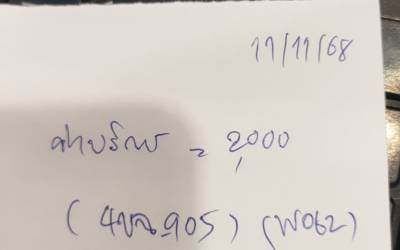 11/11/68
ค่าบริการ = 2,000
(4ขฉ905) (W062)